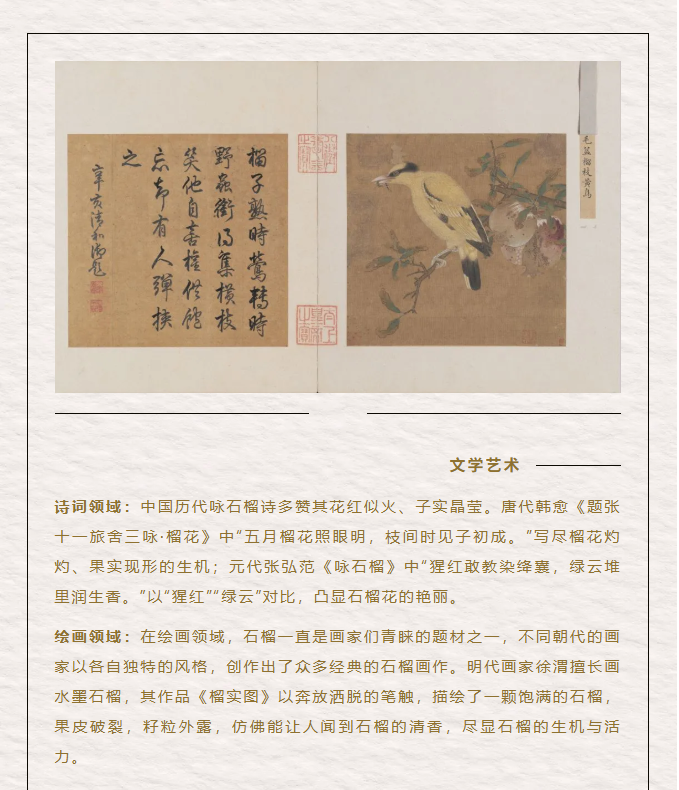 榴子熟時鶯轉時
野蟲銜得集橫枝
笑他自喜權供飽
忘却有人彈挾
之
辛亥清和御題
毛益榴枝黄鸟
文学艺术
诗词领域：中国历代咏石榴诗多赞其花红似火、子实晶莹。唐代韩愈《题张
十一旅舍三咏·榴花》中“五月榴花照眼明，枝间时见子初成。”写尽榴花灼
灼、果实现形的生机；元代张弘范《咏石榴》中“猩红敢教染绛囊，绿云堆
里润生香。”以“猩红”“绿云”对比，凸显石榴花的艳丽。
绘画领域：在绘画领域，石榴一直是画家们青睐的题材之一，不同朝代的画
家以各自独特的风格，创作出了众多经典的石榴画作。明代画家徐渭擅长画
水墨石榴，其作品《榴实图》以奔放洒脱的笔触，描绘了一颗饱满的石榴，
果皮破裂，籽粒外露，仿佛能让人闻到石榴的清香，尽显石榴的生机与活
力。